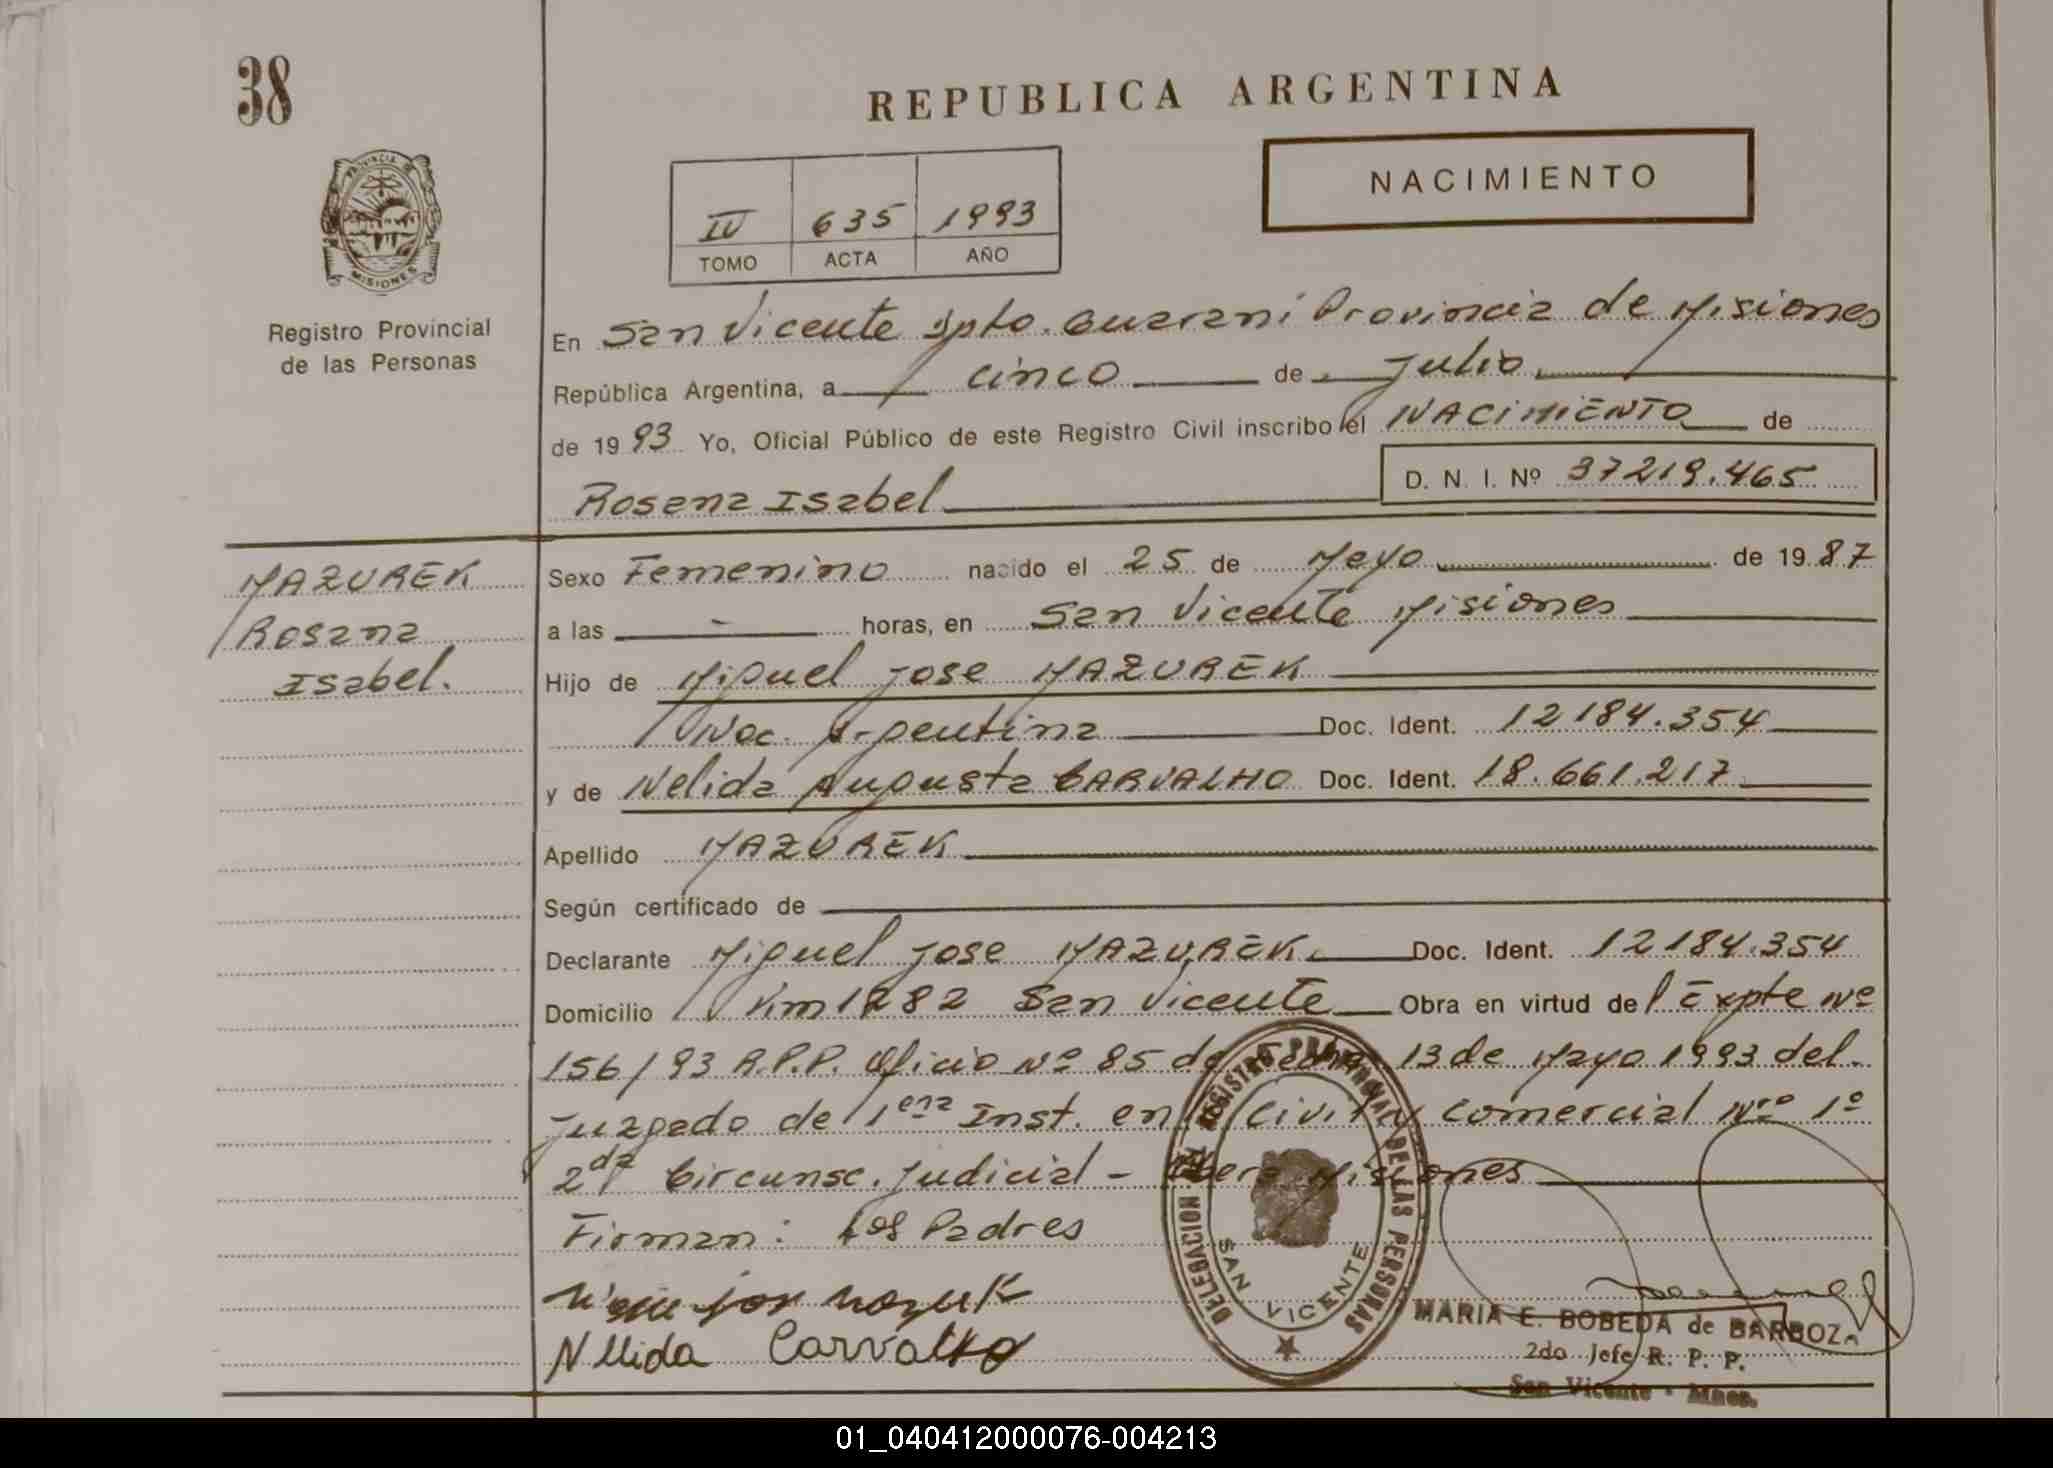 38
REPUBLICA ARGENTINA
NACIMIENTO
PROVINCIA DE MISIONES
IV 635 1993
TOMO ACTA AÑO
Registro Provincial
de las Personas
En San Vicente Dpto. Guarani Provincia de Misiones
República Argentina, a cinco de Julio
de 1993 Yo, Oficial Público de este Registro Civil inscribo el NACIMIENTO de
D. N. I. Nº 37219.465
Rosana Isabel
MAZUREK
Rosana
Isabel.
Sexo Femenino nacido el 25 de Mayo de 1987
a las - horas, en San Vicente Misiones
Hijo de Miguel Jose MAZUREK
Nac. Argentina Doc. Ident. 12184.354
y de Nelida Augusta CARVALHO Doc. Ident. 18.661.217
Apellido MAZUREK
Según certificado de
Declarante Miguel Jose MAZUREK Doc. Ident. 12184.354
Domicilio Km 1282 San Vicente Obra en virtud del Expte Nº
156/93 R.P.P. Oficio Nº 85 de fecha 13 de Mayo 1993 del
Juzgado de 1era Inst. en lo Civil y Comercial Nro 1º
2da Circunsc. Judicial - Obera Misiones
Firman: Los Padres
Nelida Carvalho
DELEGACION DEL REGISTRO PROVINCIAL DE LAS PERSONAS
SAN VICENTE
MARIA E. BOBEDA de BARBOZA
2do Jefe R. P. P.
San Vicente - Mnes.
01_040412000076-004213